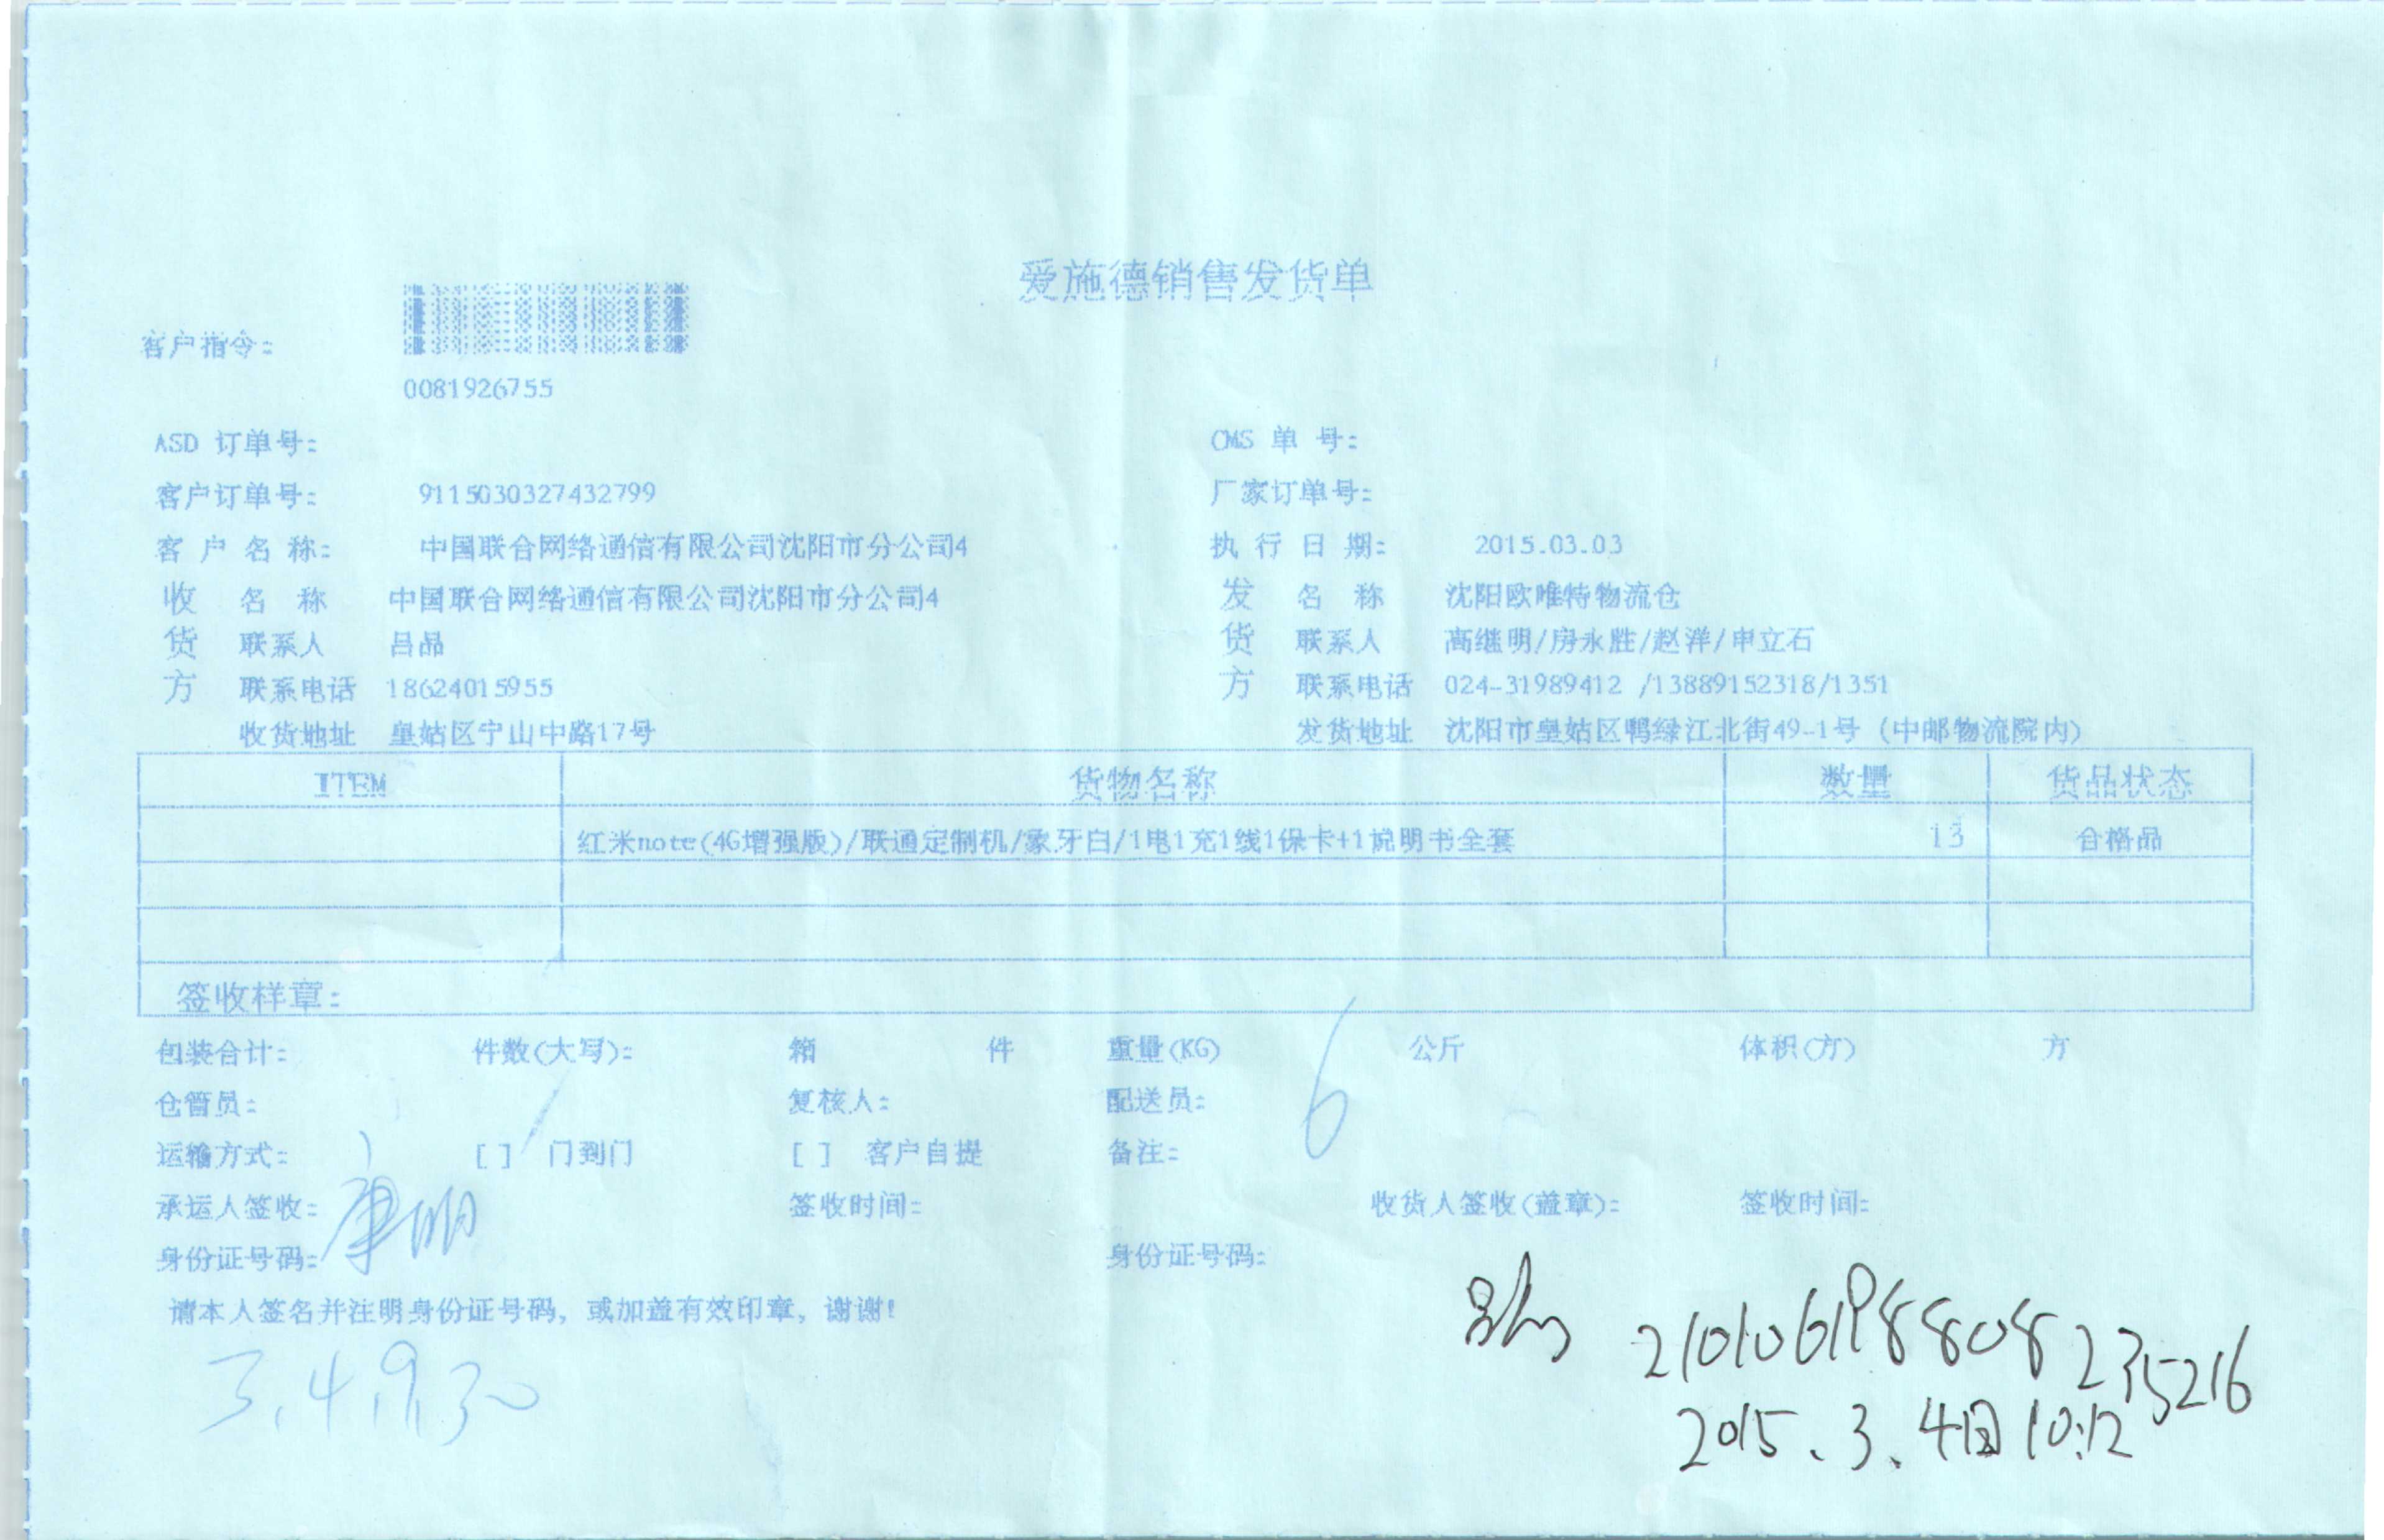 爱施德销售发货单
客户指令:
0081926755
ASD 订单号: CMS 单 号:
客户订单号: 9115030327432799 厂家订单号:
客 户 名 称: 中国联合网络通信有限公司沈阳市分公司4 执 行 日 期: 2015.03.03
收 名 称 中国联合网络通信有限公司沈阳市分公司4 发 名 称 沈阳欧唯特物流仓
货 联系人 吕品 货 联系人 高继明/房永胜/赵洋/申立石
方 联系电话 18624015955 方 联系电话 024-31989412 /13889152318/1351
收货地址 皇姑区宁山中路17号 发货地址 沈阳市皇姑区鸭绿江北街49-1号 (中邮物流院内)
ITEM 货物名称 数量 货品状态
红米note(4G增强版)/联通定制机/象牙白/1电1充1线1保卡+1说明书全套 13 合格品
签收样章:
包装合计: 件数(大写): 箱 件 重量(KG) 6 公斤 体积(方) 方
仓管员: 复核人: 配送员:
运输方式: [ ] 门到门 [ ] 客户自提 备注:
承运人签收: 签收时间: 收货人签收(盖章): 签收时间:
身份证号码: 身份证号码:
请本人签名并注明身份证号码, 或加盖有效印章, 谢谢!
210106198808235216
3.4.9.30
2015.3.4日 10:12